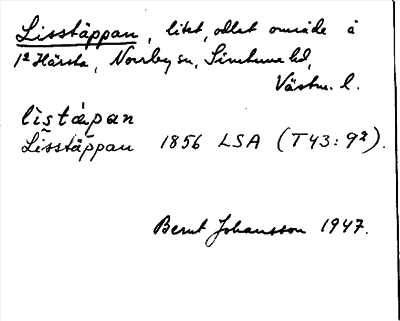 Lisstäppan, litet, odlat område å
1² Härsta, Norrby sn, Simtuna hd,
Västm. l.
lìstàpan
Lisstäppan 1856 LSA (T43:9²).
Bernt Johansson 1947.